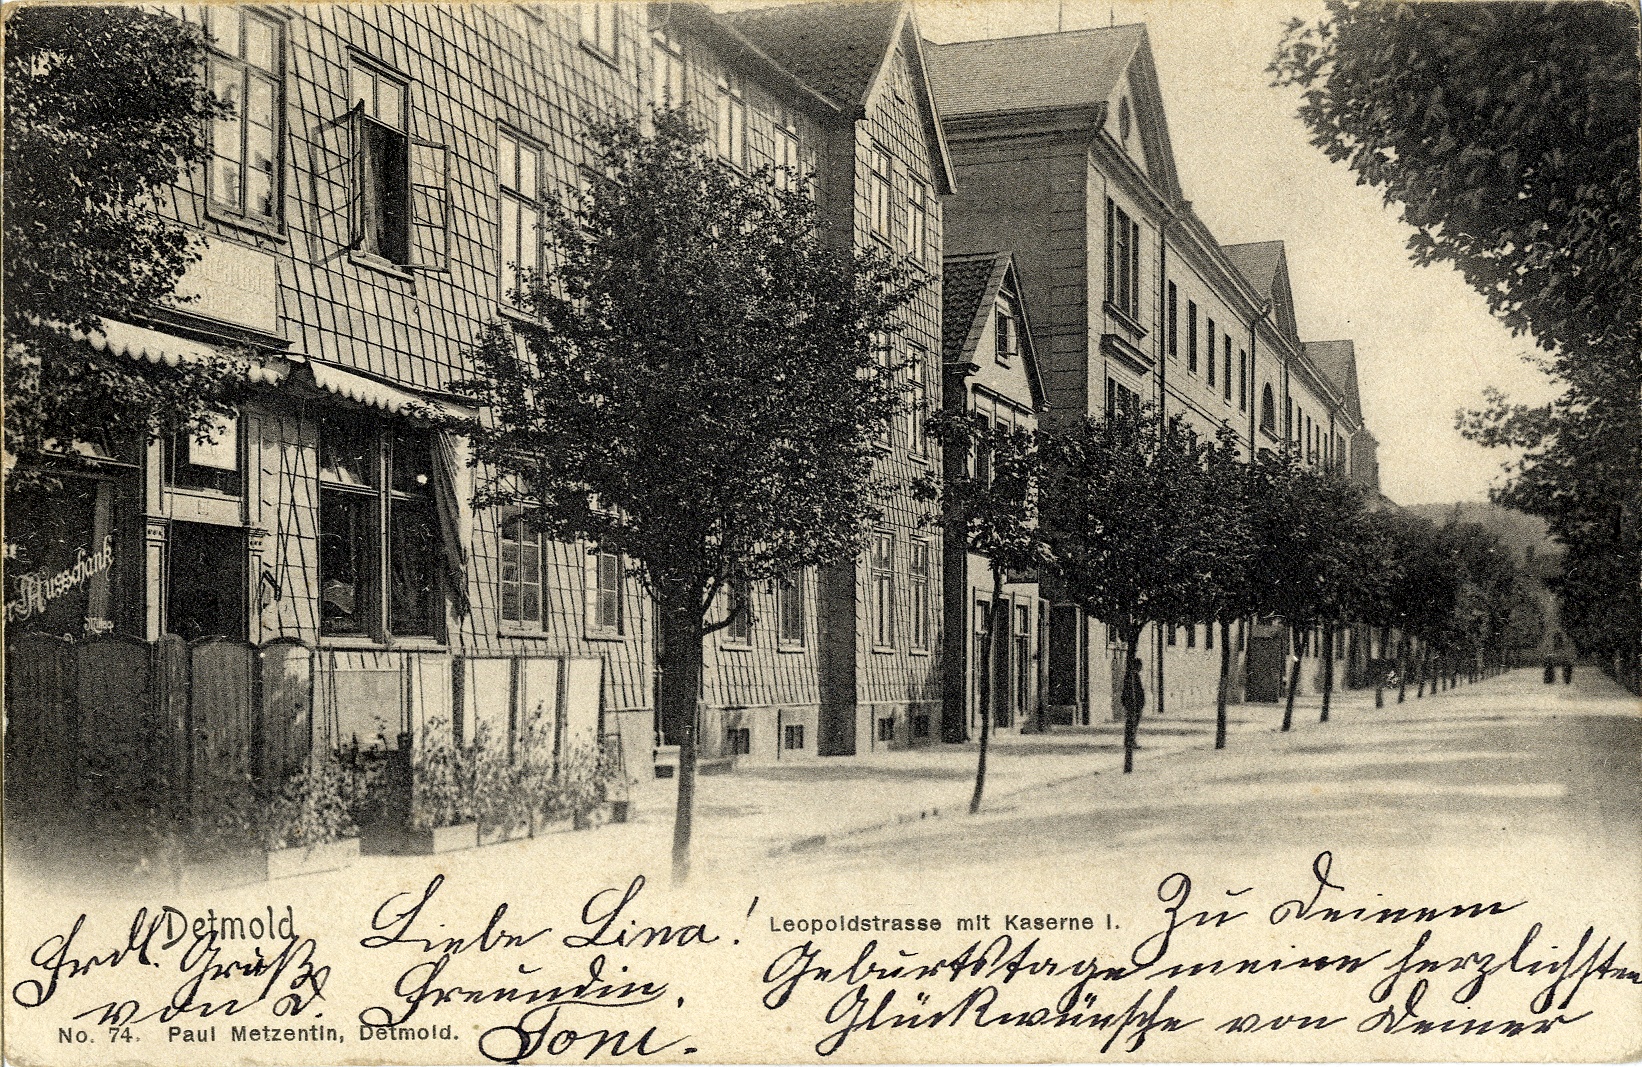 r Ausschank
Detmold
Leopoldstrasse mit Kaserne I.
Liebe Lina! Zu Deinem
Geburtstage meine herzlichsten
Glückwünsche von Deiner
Freundin.
Toni.
Frdl. Gruß
von D.
No. 74. Paul Metzentin, Detmold.